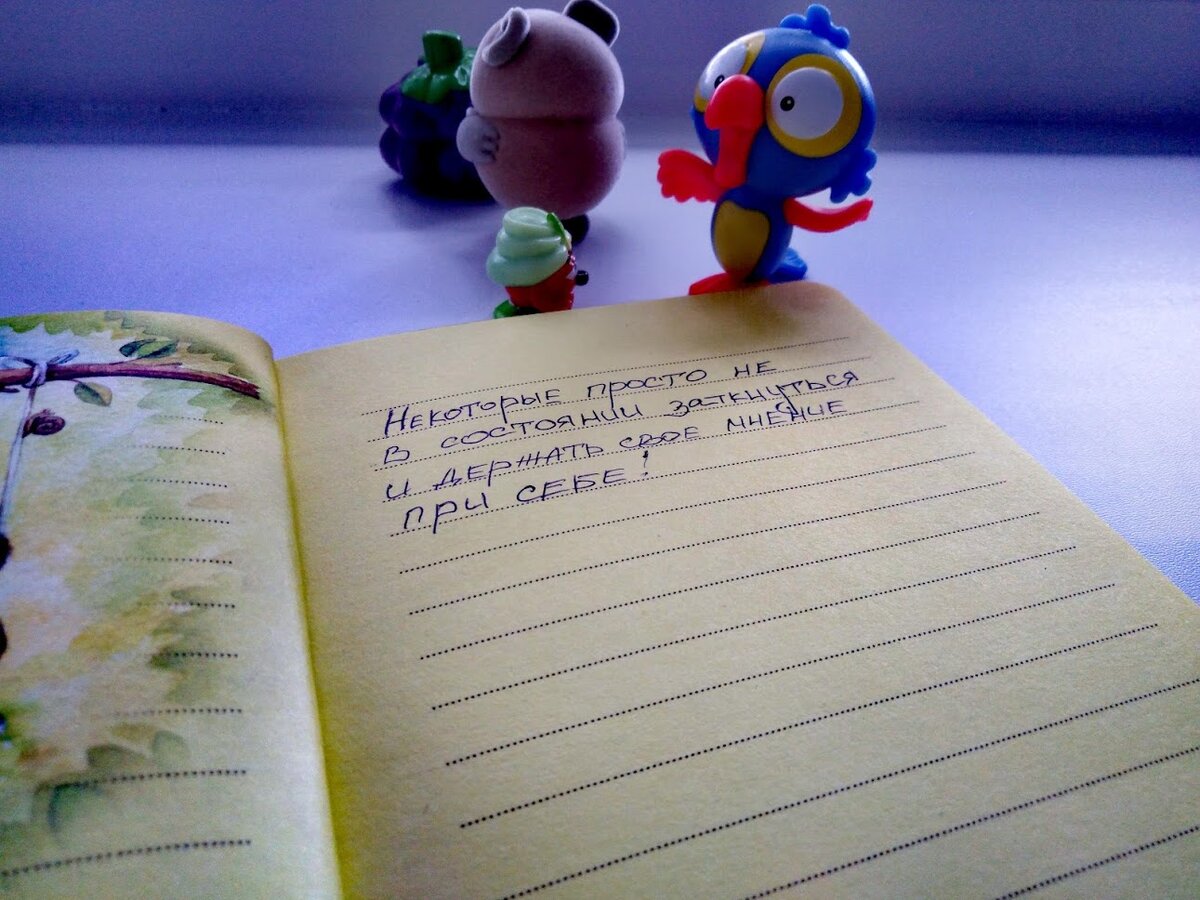 Некоторые просто не
в состоянии заткнуться
и держать свое мнение
при себе!